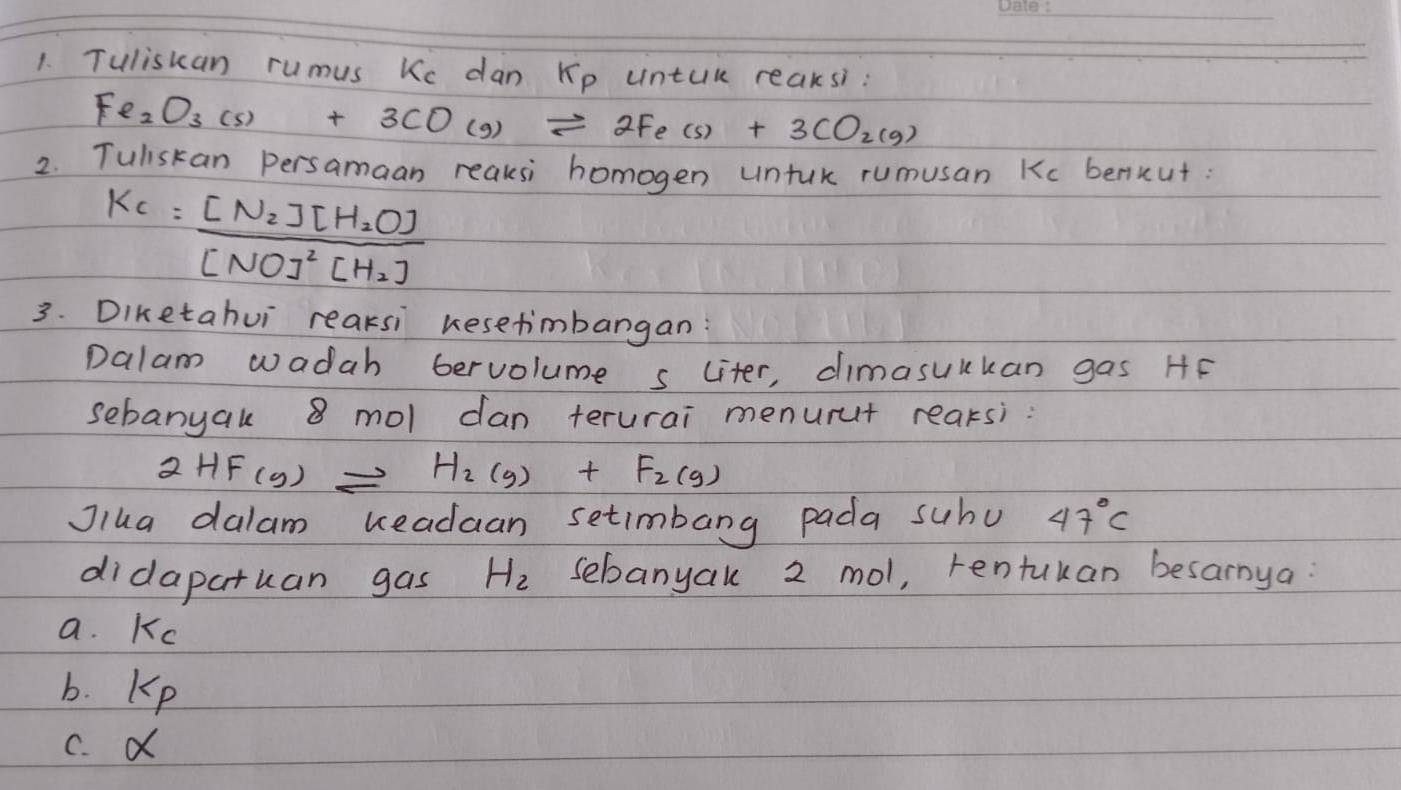 Date :
1. Tuliskan rumus Kc dan Kp untuk reaksi :
Fe₂O₃ (s) + 3CO (g) ⇌ 2Fe (s) + 3CO₂(g)
2. Tuliskan persamaan reaksi homogen untuk rumusan Kc berikut :
Kc = [N₂][H₂O]
[NO]² [H₂]
3. Diketahui reaksi kesetimbangan :
Dalam wadah bervolume 5 liter, dimasukkan gas HF
sebanyak 8 mol dan terurai menurut reaksi :
2HF(g) ⇌ H₂ (g) + F₂ (g)
Jika dalam keadaan setimbang pada suhu 47°C
didapatkan gas H₂ sebanyak 2 mol, tentukan besarnya :
a. Kc
b. Kp
c. α